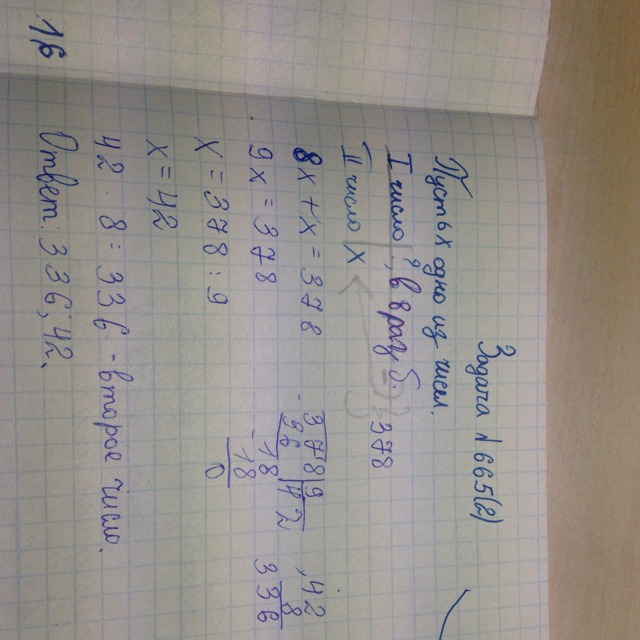 Задача № 665(2)
Пусть х одно из чисел.
I число | ?, в 8 раз б. 378
II число | х
8х + х = 378
9х = 378
х = 378 : 9
х = 42
42 · 8 = 336 - второе число.
Ответ: 336, 42.
378 9
36 42
18
18
0
42
8
336
16